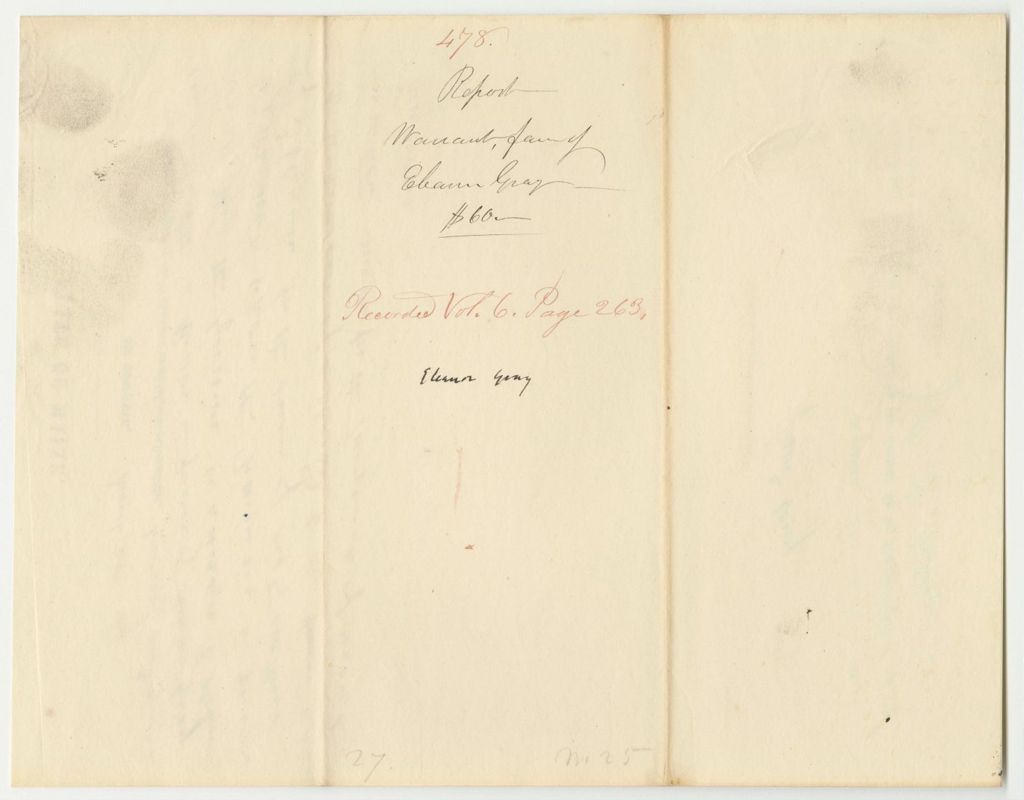 478.
Report
Warrant, fav. of
Eleanor Gray
$60.
Recorded Vol. 6. Page 263.
Eleanor Gray
27.
No. 25